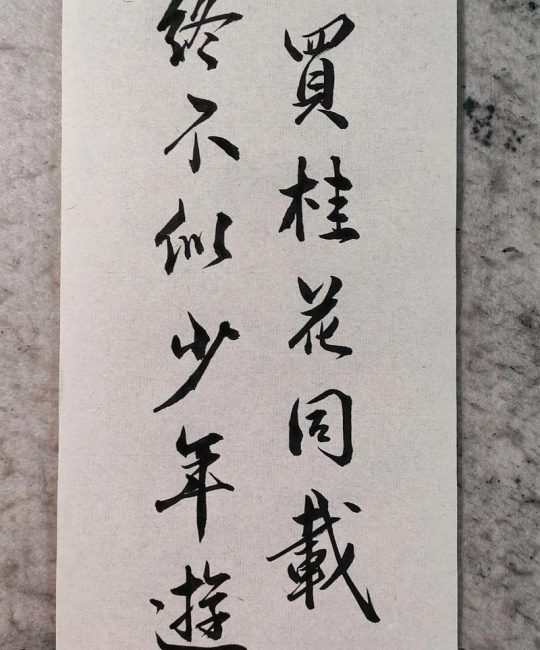 買桂花同載
終不似少年遊